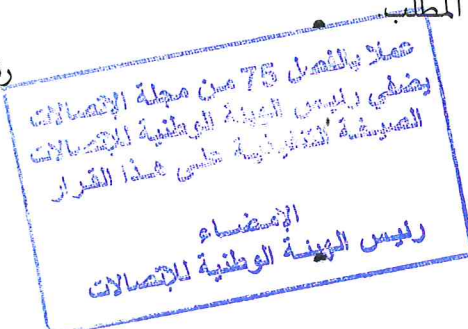 المطلب.
عملا بالفصل 75 من مجلة الإتصالات
يضفي رئيس الهيئة الوطنية للإتصالات
الصيغة التنفيذية على هذا القرار
الإمضاء
رئيس الهيئة الوطنية للإتصالات